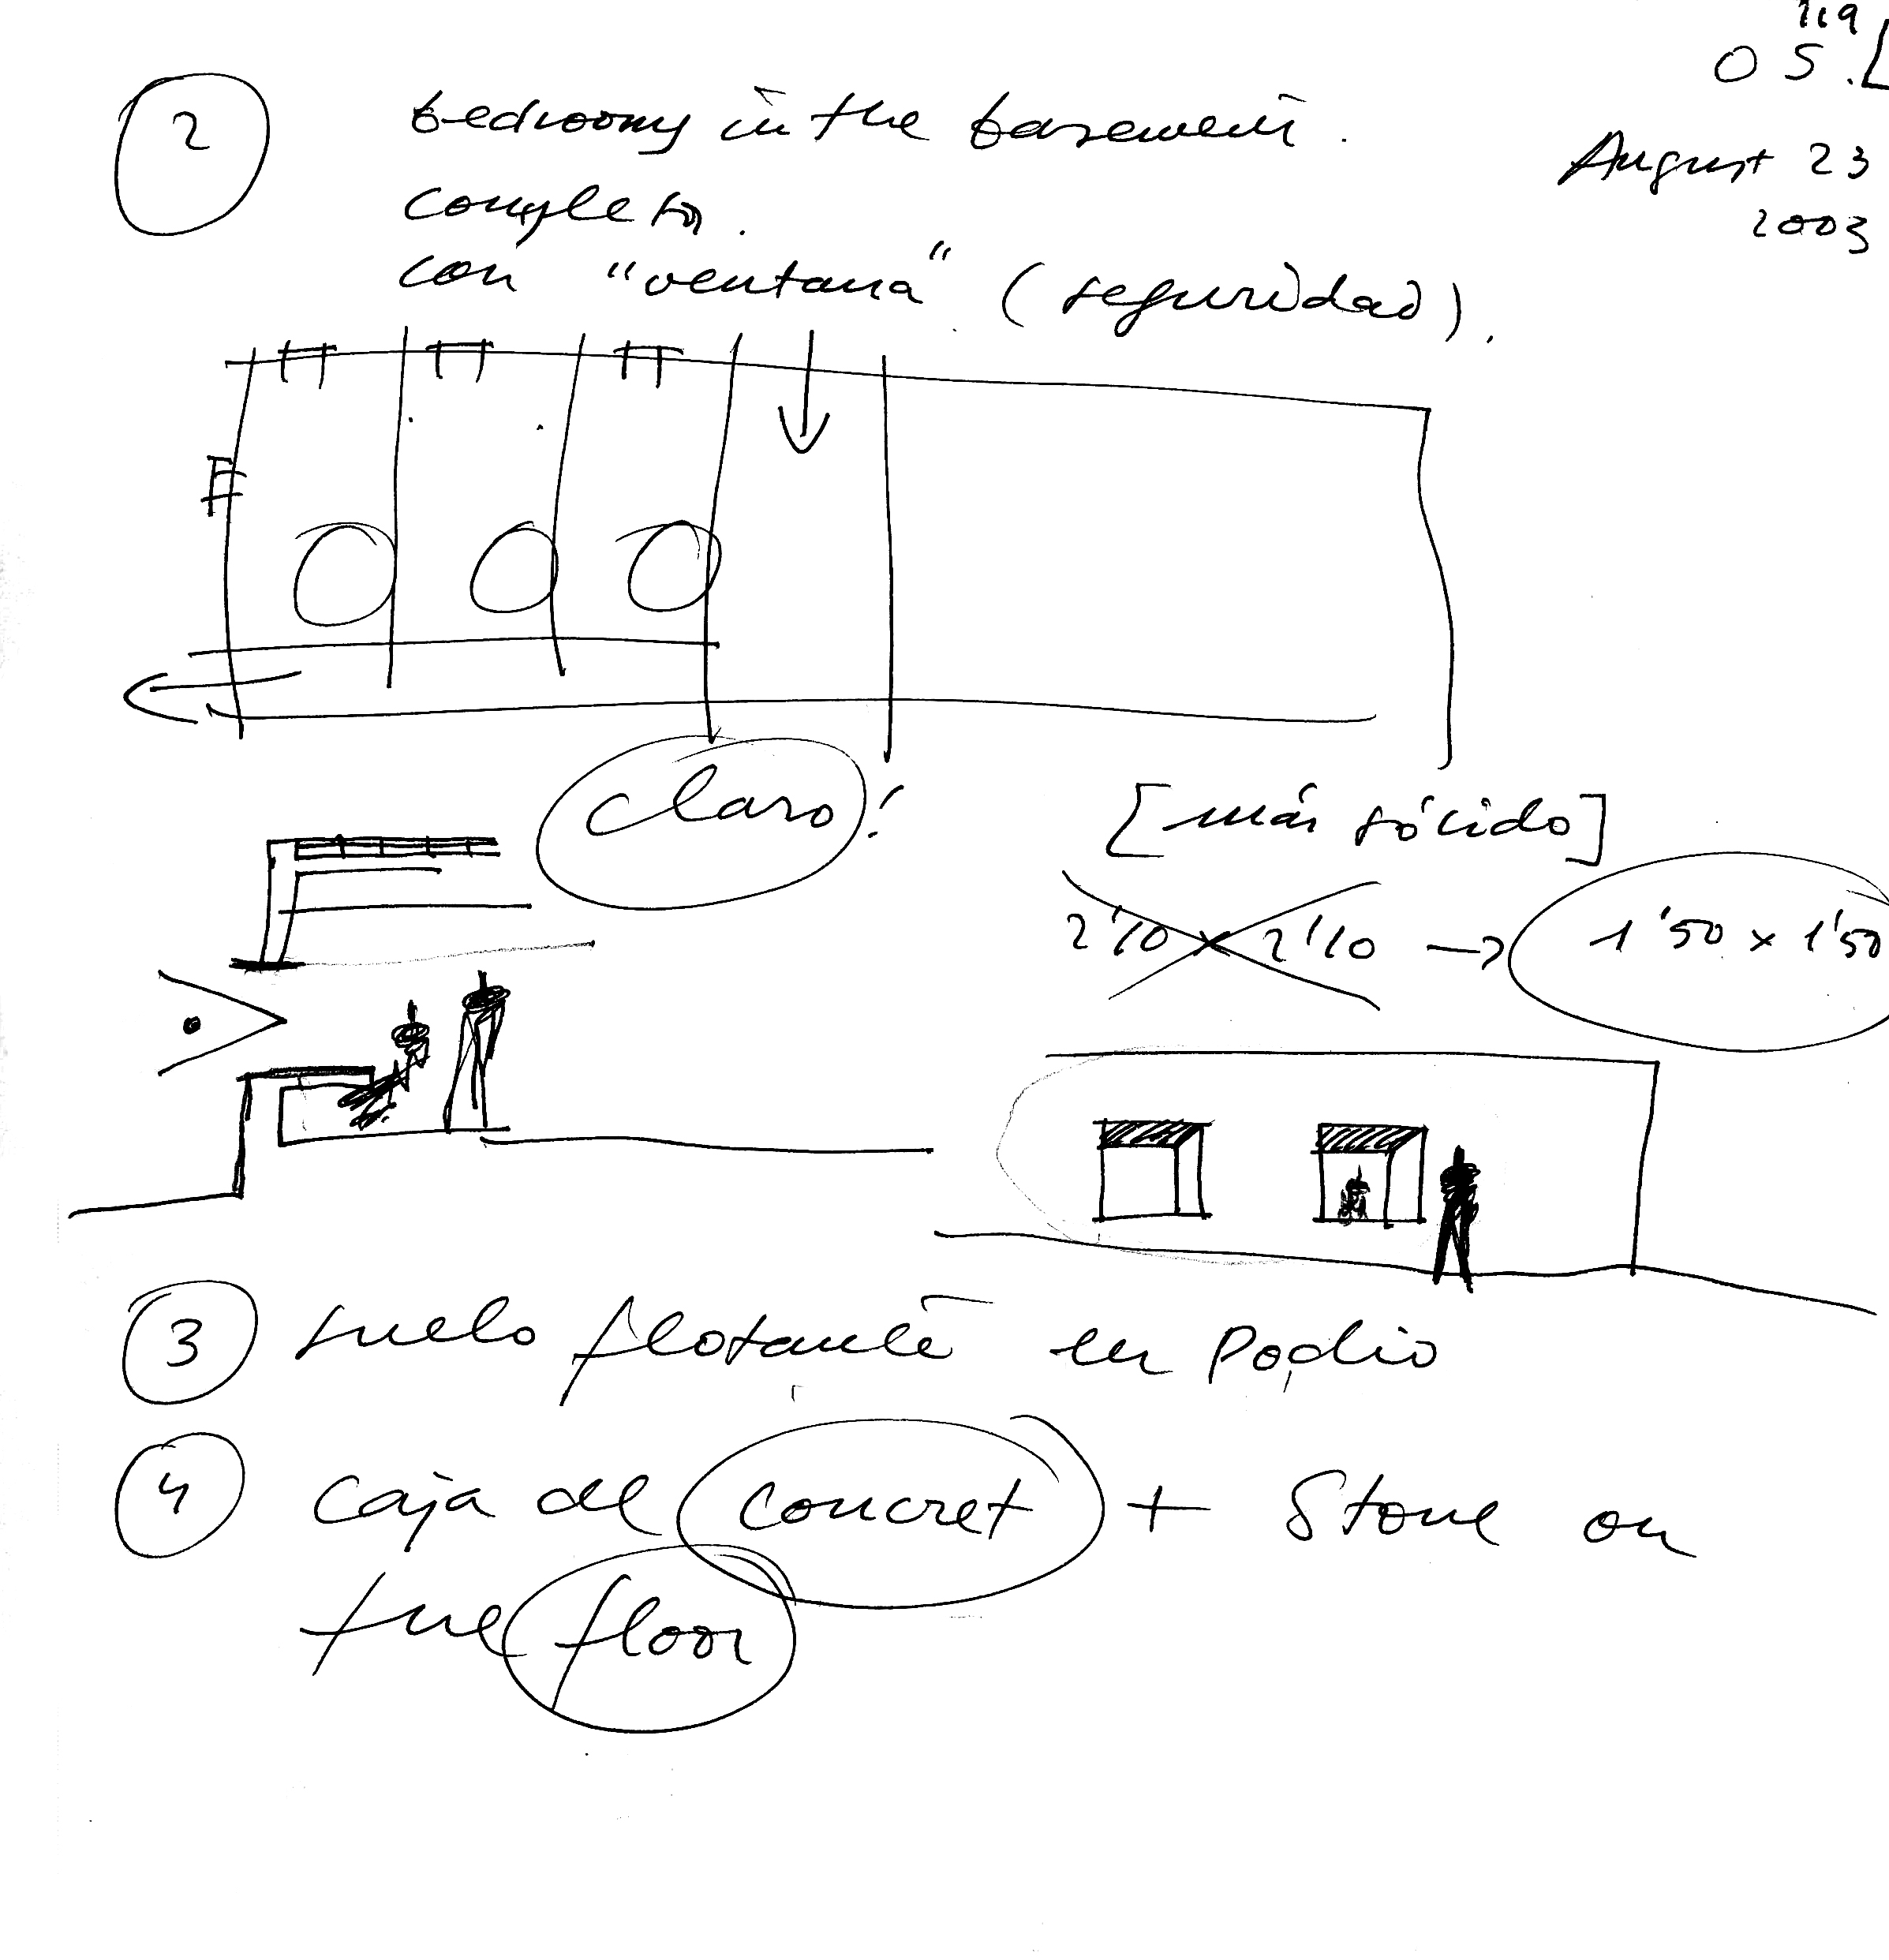 119
O S.L
2
bedrooms in the basement.
August 23
completo.
2003
con "ventana" (seguridad).
claro!
[más sólido]
2'10 x 2'10 → 1'50 x 1'50
3 suelo flotante en Podio
4 caja de concret + Stone on
the floor